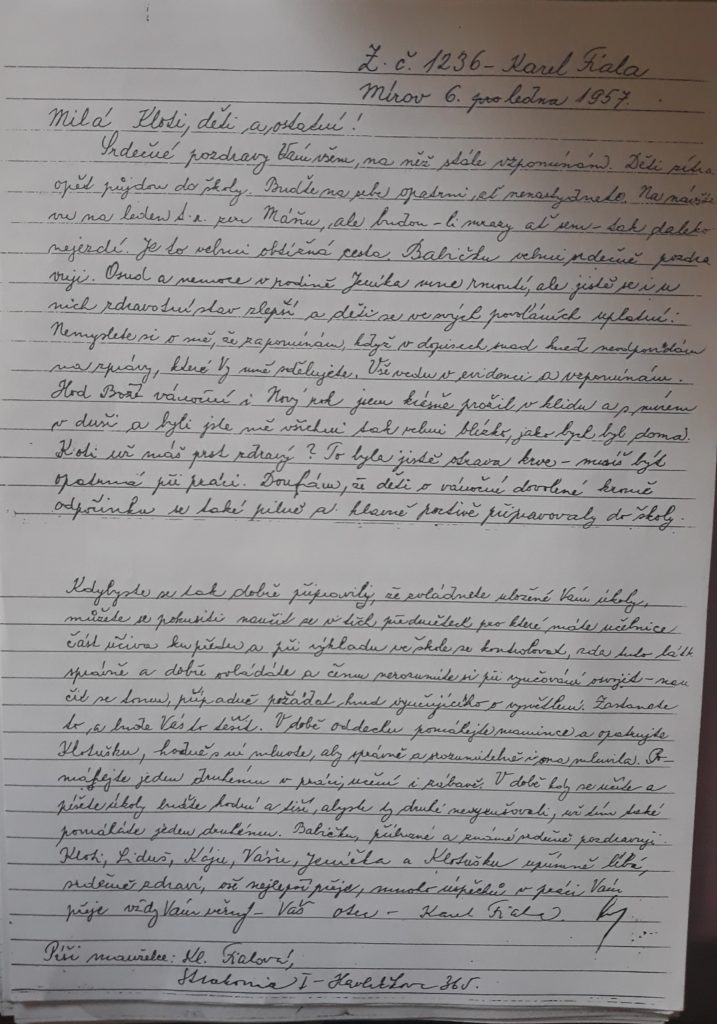 Z. č. 1236 - Karel Fiala
Mírov 6. pro ledna 1957.
Milá Kloti, děti a ostatní!
Srdečné pozdravy Vám všem, na něž stále vzpomínám. Děti zítra
opět půjdou do školy. Buďte na sebe opatrni, ať nenastydnete. Na návště
vu na leden t.r. zvu Máňu, ale budou-li mrazy ať sem - tak daleko
nejezdí. Je to velmi obtížná cesta. Babičku velmi srdečně pozdra
vuji. Osud a nemoce v rodině Jeníka mne rmoutí, ale jistě se i u
nich zdravotní stav zlepší a děti se ve svých povoláních uplatní.
Nemyslete si o mě, že zapomínám, když v dopisech snad hned neodpovídám
na zprávy, které Vy mně sdělujete. Vše vedu v evidenci a vzpomínám.
Hod Boží vánoční i Nový rok jsem krásně prožil v klidu a s mírem
v duši a byli jste mě všichni tak velmi blízko, jako bych byl doma.
Kloti už máš prst zdravý? To byla jistě otrava krve - musíš být
opatrná při práci. Doufám, že děti o vánoční dovolené kromě
odpočinku se také pilně a hlavně poctivě připravovaly do školy.
Kdybyste se tak dobře připravily, že zvládnete uložené Vám úkoly,
můžete se pokusiti naučit se v těch předmětech pro které máte učebnice
část učiva ku předu a při výkladu ve škole se kontrolovat, zda tuto látk
správně a dobře ovládáte a čemu nerozumíte si při vyučování osvojit - nau
čit se tomu, případně požádat hned vyučujícího o vysvětlení. Zastanete
to, a bude Vás to těšit. V době oddechu pomáhejte mamince a opatrujte
Klotušku, hodně s ní mluvte, aby správně a srozumitelně i ona mluvila. Po
máhejte jeden druhému v práci, učení i zábavě. V době kdy se učíte a
píšete úkoly buďte hodní a tiší, abyste ty druhé nevyrušovali, už tím také
pomáháte jeden druhému. Babičku, příbuzné a známé srdečně pozdravuji.
Kloti, Liduš, Káju, Vášu, Jeníčka a Klotušku upřímně líbá,
srdečně zdraví, vše nejlepší přeje, mnoho úspěchů v práci Vám
přeje vždy Vám věrný - Váš otec - Karel Fiala.
Píši manželce: Kl. Fialová,
Strakonice I - Havlíčkova 365.